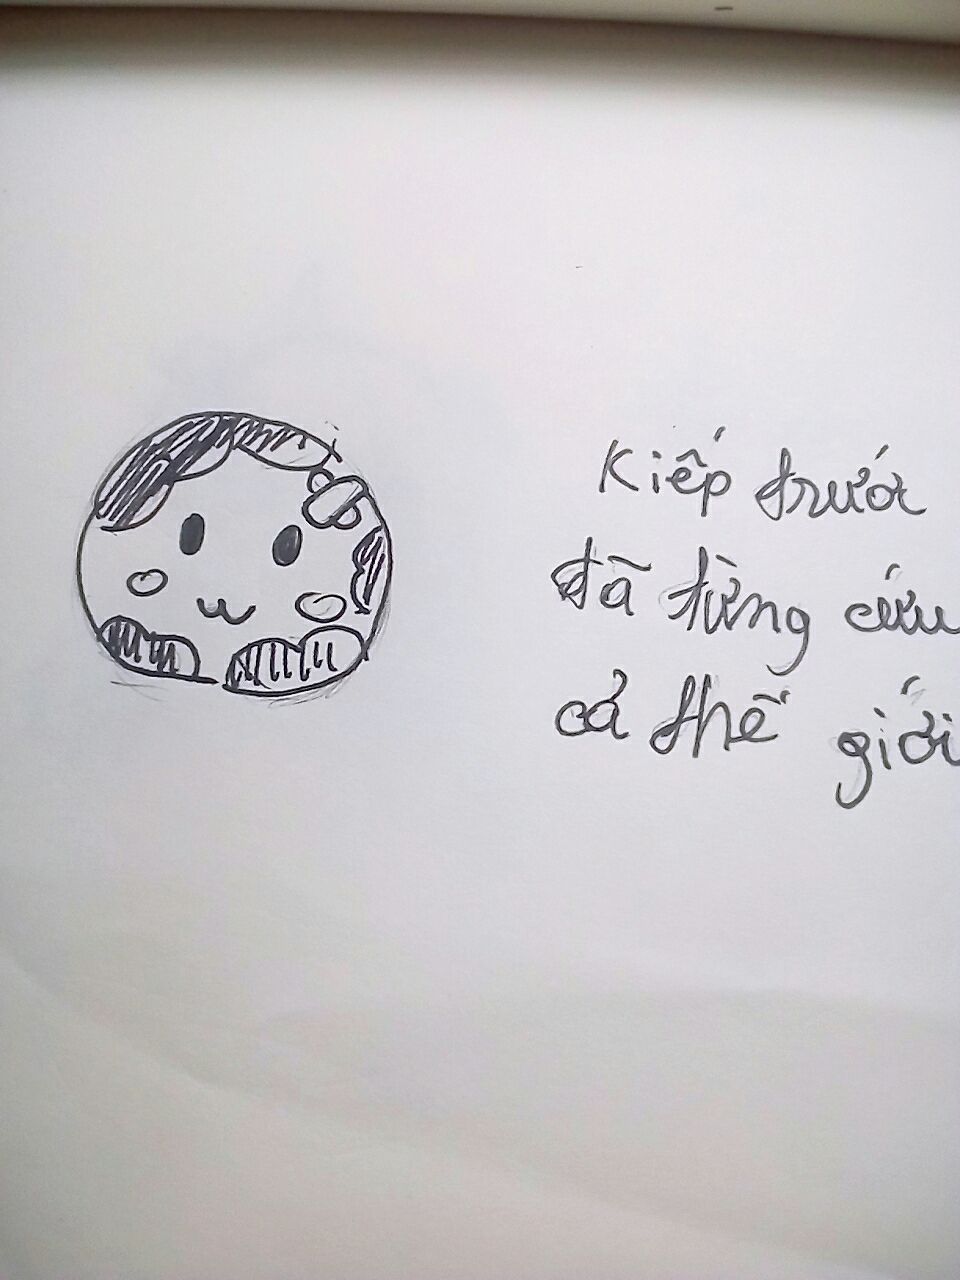 Kiếp trước
đã từng cứu
cả thế giới